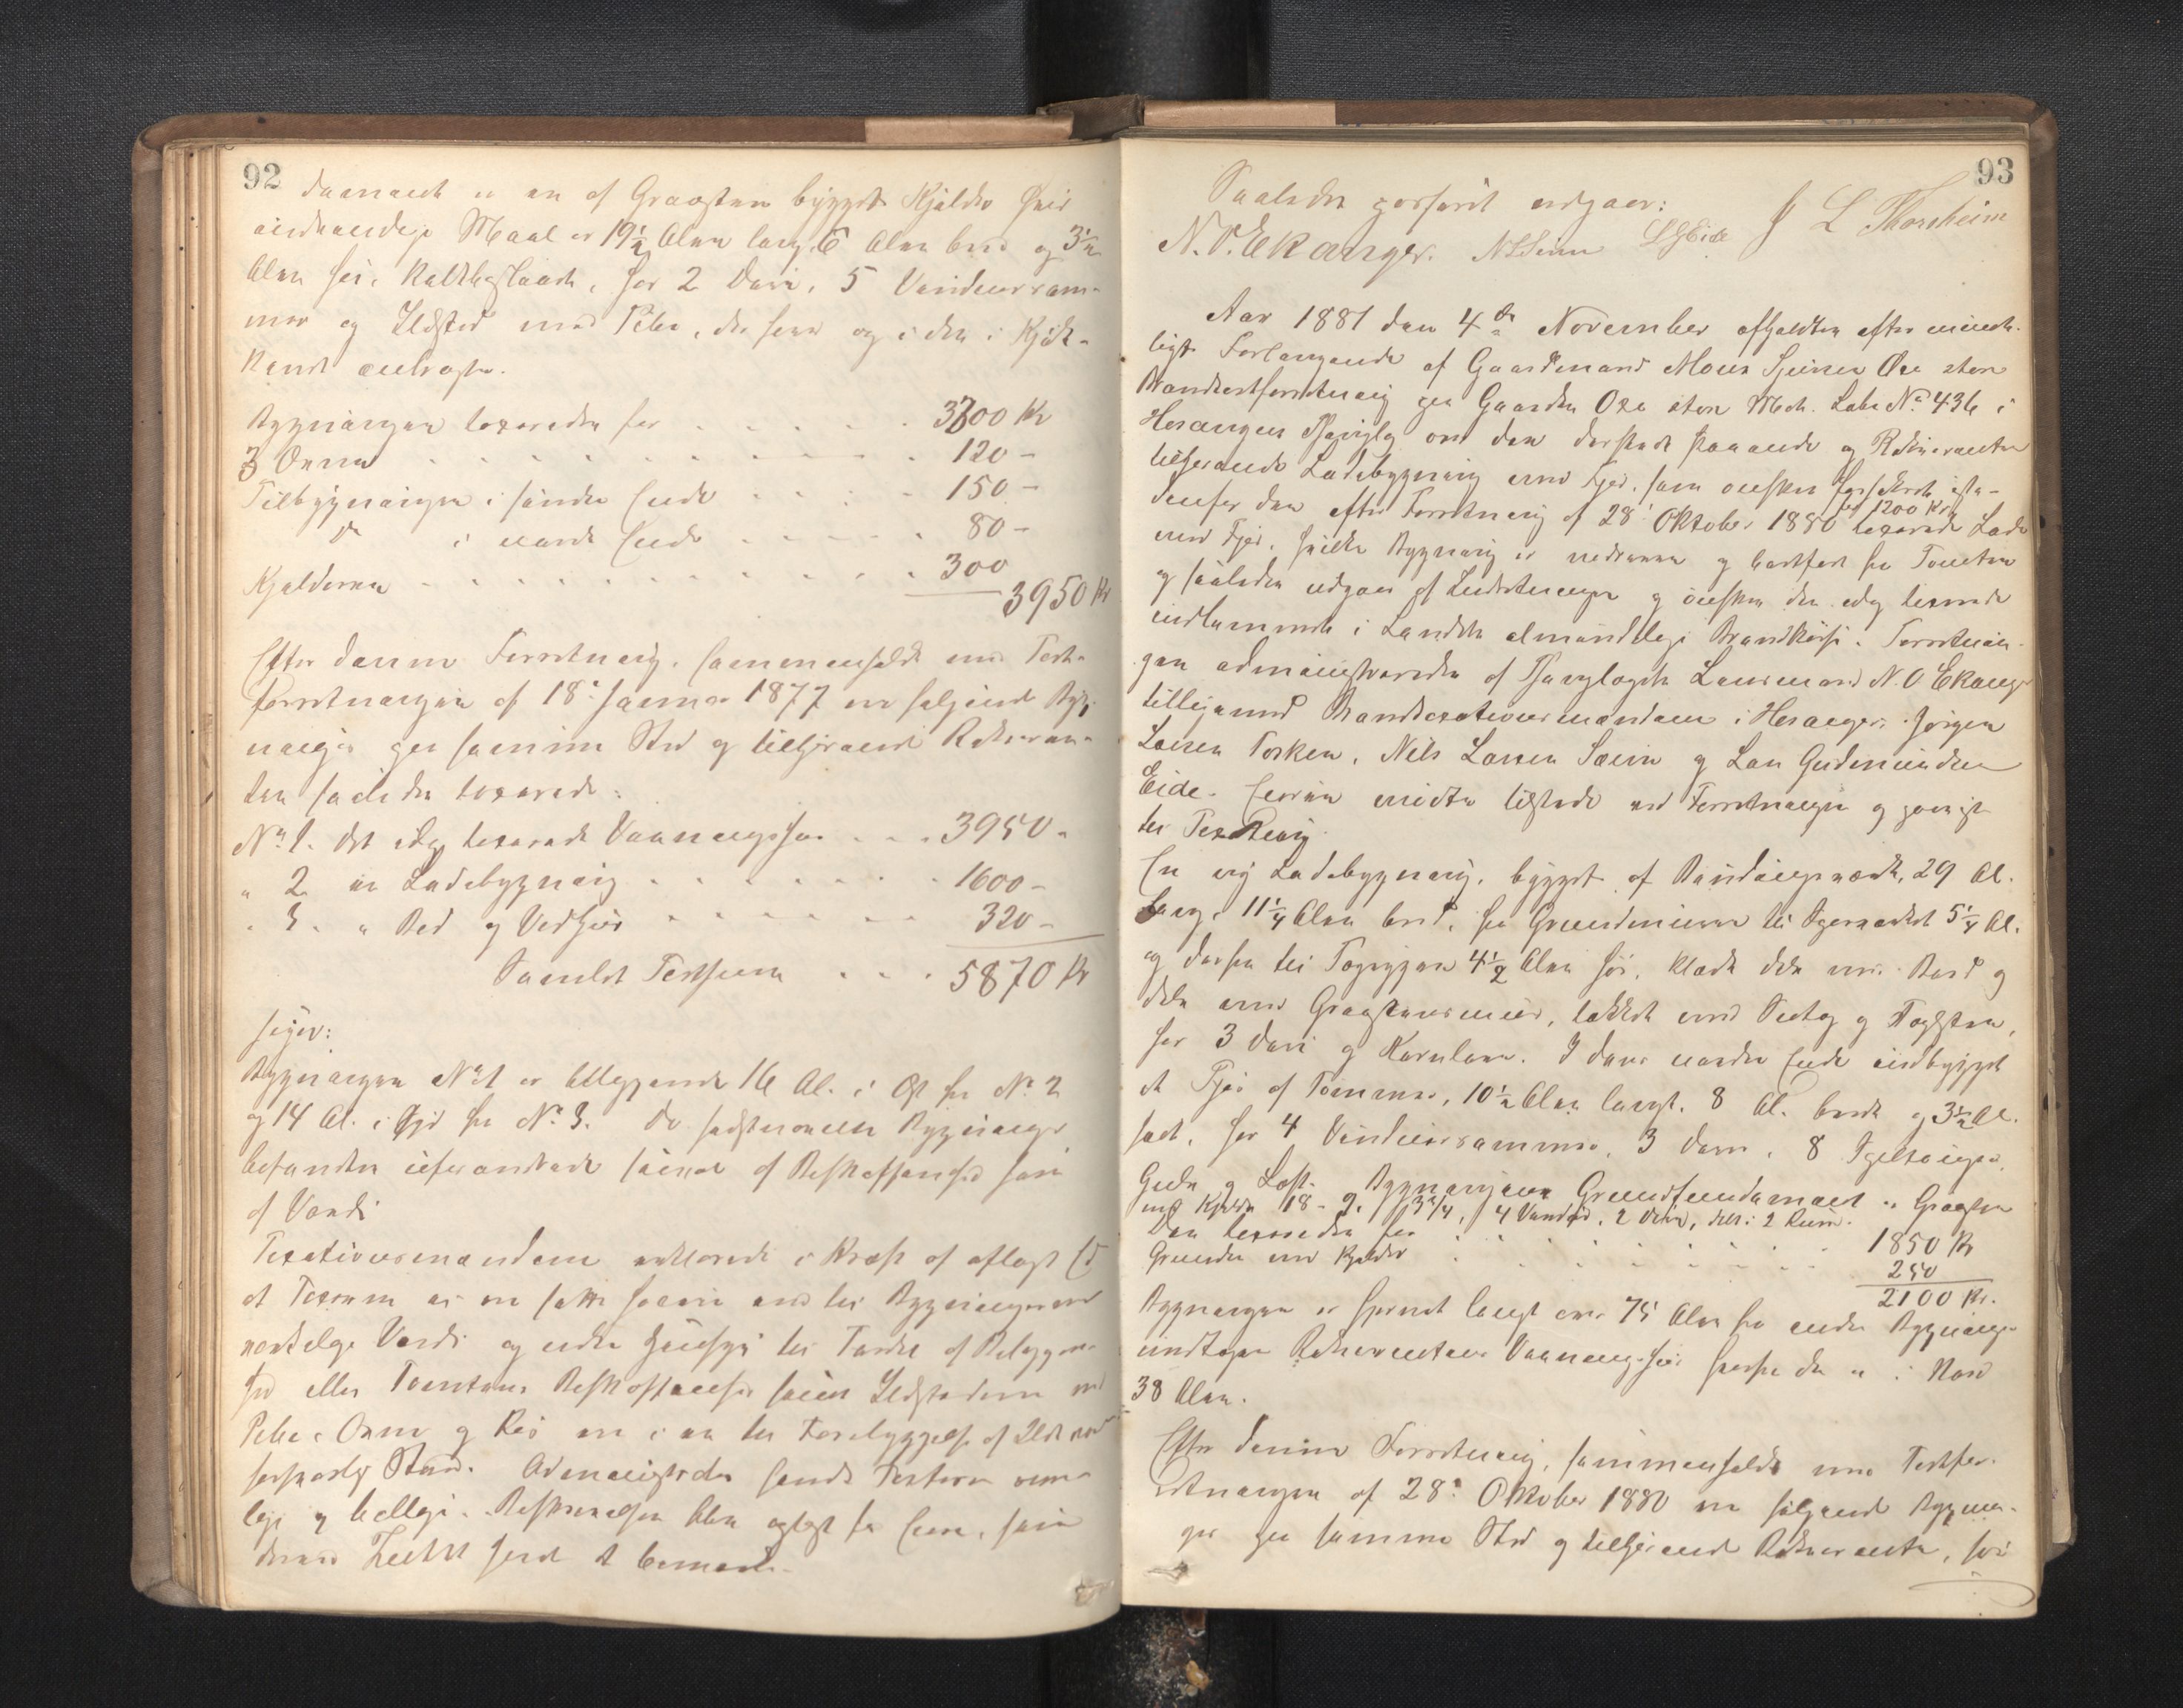 92
dermed er en af Graasten bygget Kjelder hvis
indvendige Maal er 19½ Alen lang 6 Alen bred og 3½
Alen høi, Kalkbeslaaet, har 2 Døre, 5 Vinduesram-
mer og Ildsted med Pibe,
Bygningen taxeredes for 3300 Kr
3 Ovne 120 -
Tilbygningen i søndre Ende 150 -
do i nordre Ende 80 -
Kjelderen 300
3950 Kr
Efter denne Forretning, sammenholdt med Taxt-
forretningen af 18de Januar 1877 ere følgende Byg-
ninger paa samme Sted og tilhørende Rekviren-
ten saaledes taxerede:
No 1. det idag taxerede Vaaningshus 3950 -
" 2. en Ladebygning 1600 -
" 3. " Bod og Vedhus 320 -
Samlet Taxtsum 5870 Kr
siger:
Bygningen No 1 er beliggende 16 Al. i Øst fra No 2
og 14 Al. i Syd fra No 3. De sidstnævnte Bygninger
befandtes uforandrede saavel af Beskaffenhed som
af Værdi
Taxationsmændene erklærede i Kraft af aflagt Ed
at Taxterne er ansatte saavel med til Bygningernes
nøiagtige Værdi og uden Hensyn til Stedet Beliggen-
hed eller Tomtens Beskaffenhed samt Ildstederne med
Piber, Ovne og Rør ere i en til Forebyggelse af Ildsvaade
forsvarlig Stand. Administrator fandt Taxterne rime-
lige og billige. Beskrivelsen blev oplæst for Eieren, som
derved Intet havde at bemærke.
93
Saaledes passeret udgaar:
N. O. Ekanger. N L Sævin L G Eide J L Thorsheim
Aar 1881 den 4de November afholdtes efter mundt-
ligt Forlangende af Gaardmand Mons Oxe store
Brandtaxtforretning paa Gaarden Oxe store Matr. Løbe No 436 i
Hosanger Thinglag over den dersteds staaende og Rekvirenten
tilhørende Ladebygning med Fjøs, som ønskes forsikret iste-
detfor den efter Forretning af 28de Oktober 1880 til 1200 Kr taxerede Lade
med Fjøs, hvilken Bygning er nedreven og bortført fra Tomten
og saaledes udgaar af Indretningen og ønskes den idag taxerede
indlemmet i Landets almindelige Brandkasse. Forretnin-
gen administreredes af Thinglagets Lensmand N. O Ekanger
tilligemed Brandtaxationsmændene i Hosanger: Jørgen
Larsen Torsken, Nils Larsen Sævin og Lars Gudmundsen
Eide. Eieren mødte tilstede ved Forretningen og
til Taxering.
En ny Ladebygning, bygget af Bindingsværk, 29 Al.
Lang, 11¼ Alen bred, fra Grundmuren til Tagskjægget 5¼ Al.
og derfra til Tagryggen 4½ Alen høi, klædt dels med Bord og
dels med Graastensmuur, tækket med Sutag og Tagsten,
har 3 Døre og Kornlem. I dens nordre Ende indbygget
et Fjøs af Tømmer, 10½ Alen langt, 8 Al. bredt og 3½ Al.
høit, har 4 Vinduesrammer, 3 Døre, 8
Gulv og Loft. Bygningens Grundfundament er Graasten
med Kjelder 18 - 9, 3¾, 4 Vinduer, 2 Døre, delt i 2 Rum.
Den taxeredes for 1850 Kr
Grunden med Kjelder 250
2100 Kr.
Bygningen er fjernet langt over 75 Alen fra andre Bygninger
undtagen Rekvirentens Vaaningshus hvorfra den er i Nord
38 Alen.
Efter denne Forretning, sammenholdt med Taxtfor-
retningen af 28de Oktober 1880 ere følgende Bygnin-
ger paa samme Sted og tilhørende Rekvirenten,